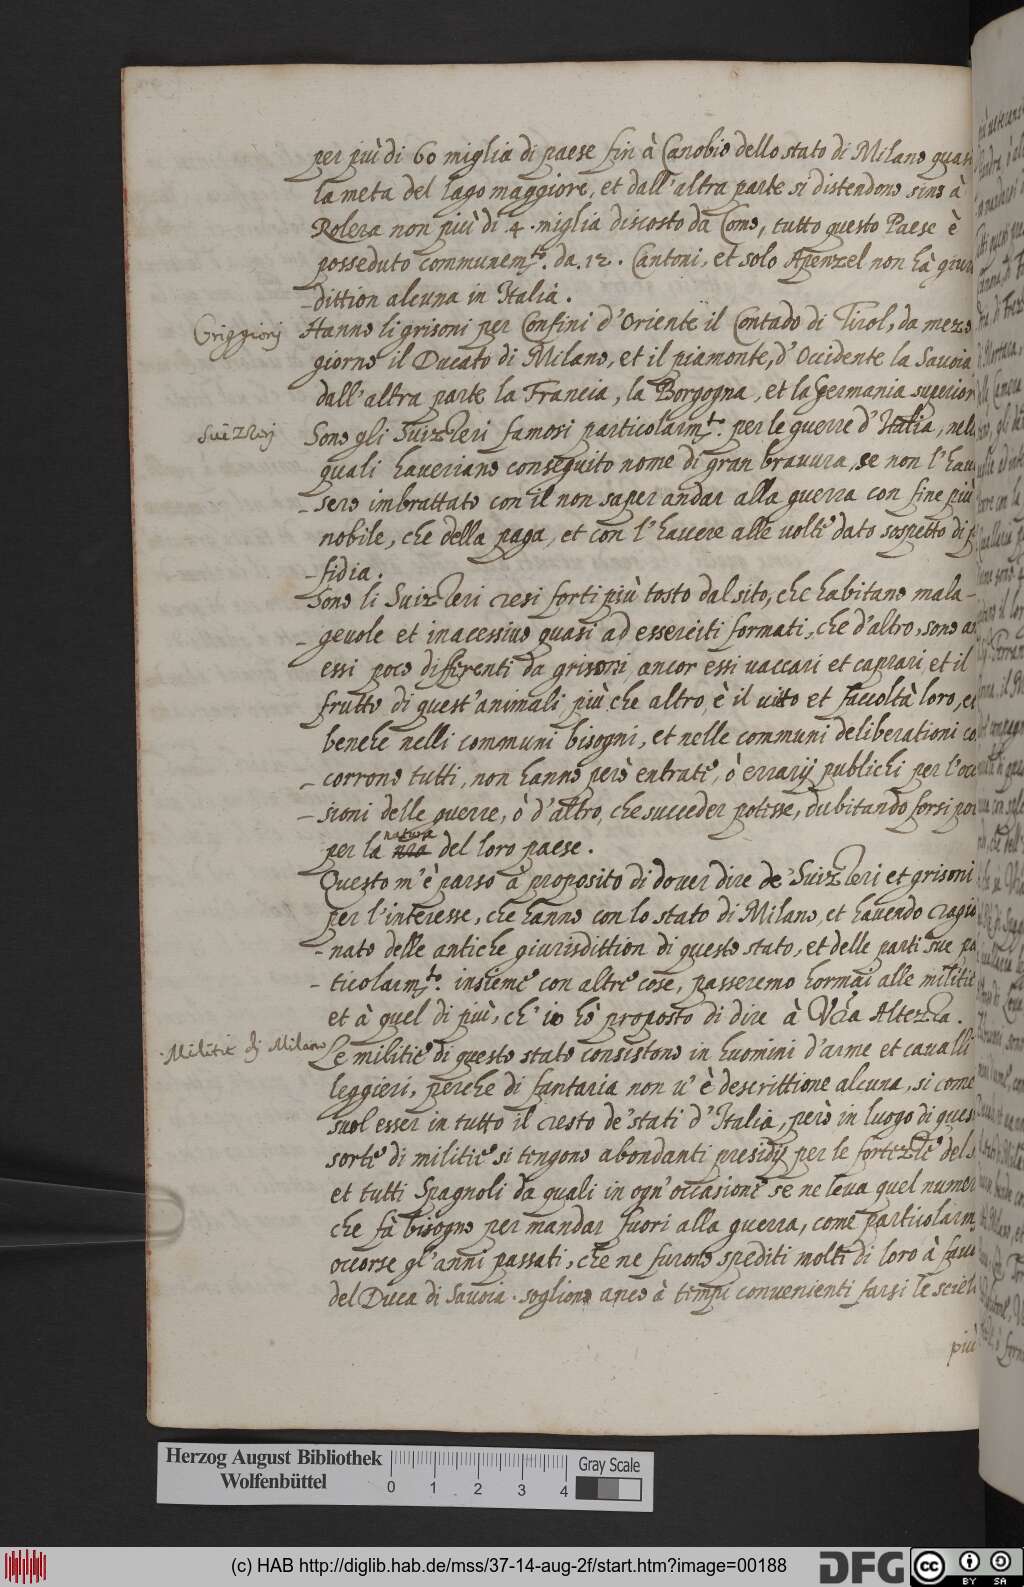 per più di 60 miglia di paese fin à Canobio dello stato di Milano quasi
la meta del lago maggiore, et dall'altra parte si distendono sino à
Rolera non più di 4. miglia discosto da Como, tutto questo Paese è
posseduto communem.te da .12. Cantoni, et solo Apenzel non hà giuris
-dittion alcuna in Italia.
Griggionj
Hanno li grisoni per Confini d'Oriente il Contado di Tirol, da mezo
giorno il Ducato di Milano, et il piamonte, d'Occidente la Savoia
dall'altra parte la Francia, la Borgogna, et la Germania superior
Suizzerj
Sono gli Suizzeri famosi particolarm.te per le guerre d'Italia, nelle
quali haveriano conseguito nome di gran bravura, se non l'haves
-sero imbrattato con il non saper andar alla guerra con fine più
nobile, che della paga, et con l'havere alle volte dato sospetto di
-fidia.
Sono li Suizzeri resi forti più tosto dal sito, che habitano mala-
-gevole et inacessivo quasi ad esserciti formati, che d'altro, sono
essi poco differenti da grisoni, ancor essi vaccari et caprari, et il
frutto di quest'animali più che altro, è il vitto et faccoltà loro, et
benche nelli communi bisogni, et nelle communi deliberationi con
-corrono tutti, non hanno però entrate, ò errarij publichi per l'occa
-sioni delle guerre, ò d'altro, che succeder potesse, dubitando forsi
natura
per la nra del loro paese.
Questo m'è parso à proposito di dover dire de' Suizzeri et grisoni
per l'interesse, che hanno con lo stato di Milano, et havendo ragio
-nato delle antiche giurisdittion di questo stato, et delle parti sue par
-ticolarm.te insieme con altre cose, passeremo hormai alle militie
et à quel di più, ch'io hò proposto di dire à Vra Altezza.
Militie di Milano
Le militie di questo stato consistono in huomini d'arme et cavalli
leggieri, perche di fantaria non v'è descrittione alcuna, si come
suol esser in tutto il resto de' stati d'Italia, però in luogo di questa
sorte di militie si tengono abondanti presidij per le fortezze del
et tutti Spagnoli da quali in ogn'occasione se ne leva quel numero
che fà bisogno per mandar fuori alla guerra, come particolarm.te
occorse gl'anni passati, che ne furono spediti molti di loro à favor
del Duca di Savoia. sogliono anco à tempi convenienti farsi le sciel
più
Herzog August Bibliothek
Wolfenbüttel
0 1 2 3 4
Gray Scale
(c) HAB http://diglib.hab.de/mss/37-14-aug-2f/start.htm?image=00188
DFG
cc BY SA